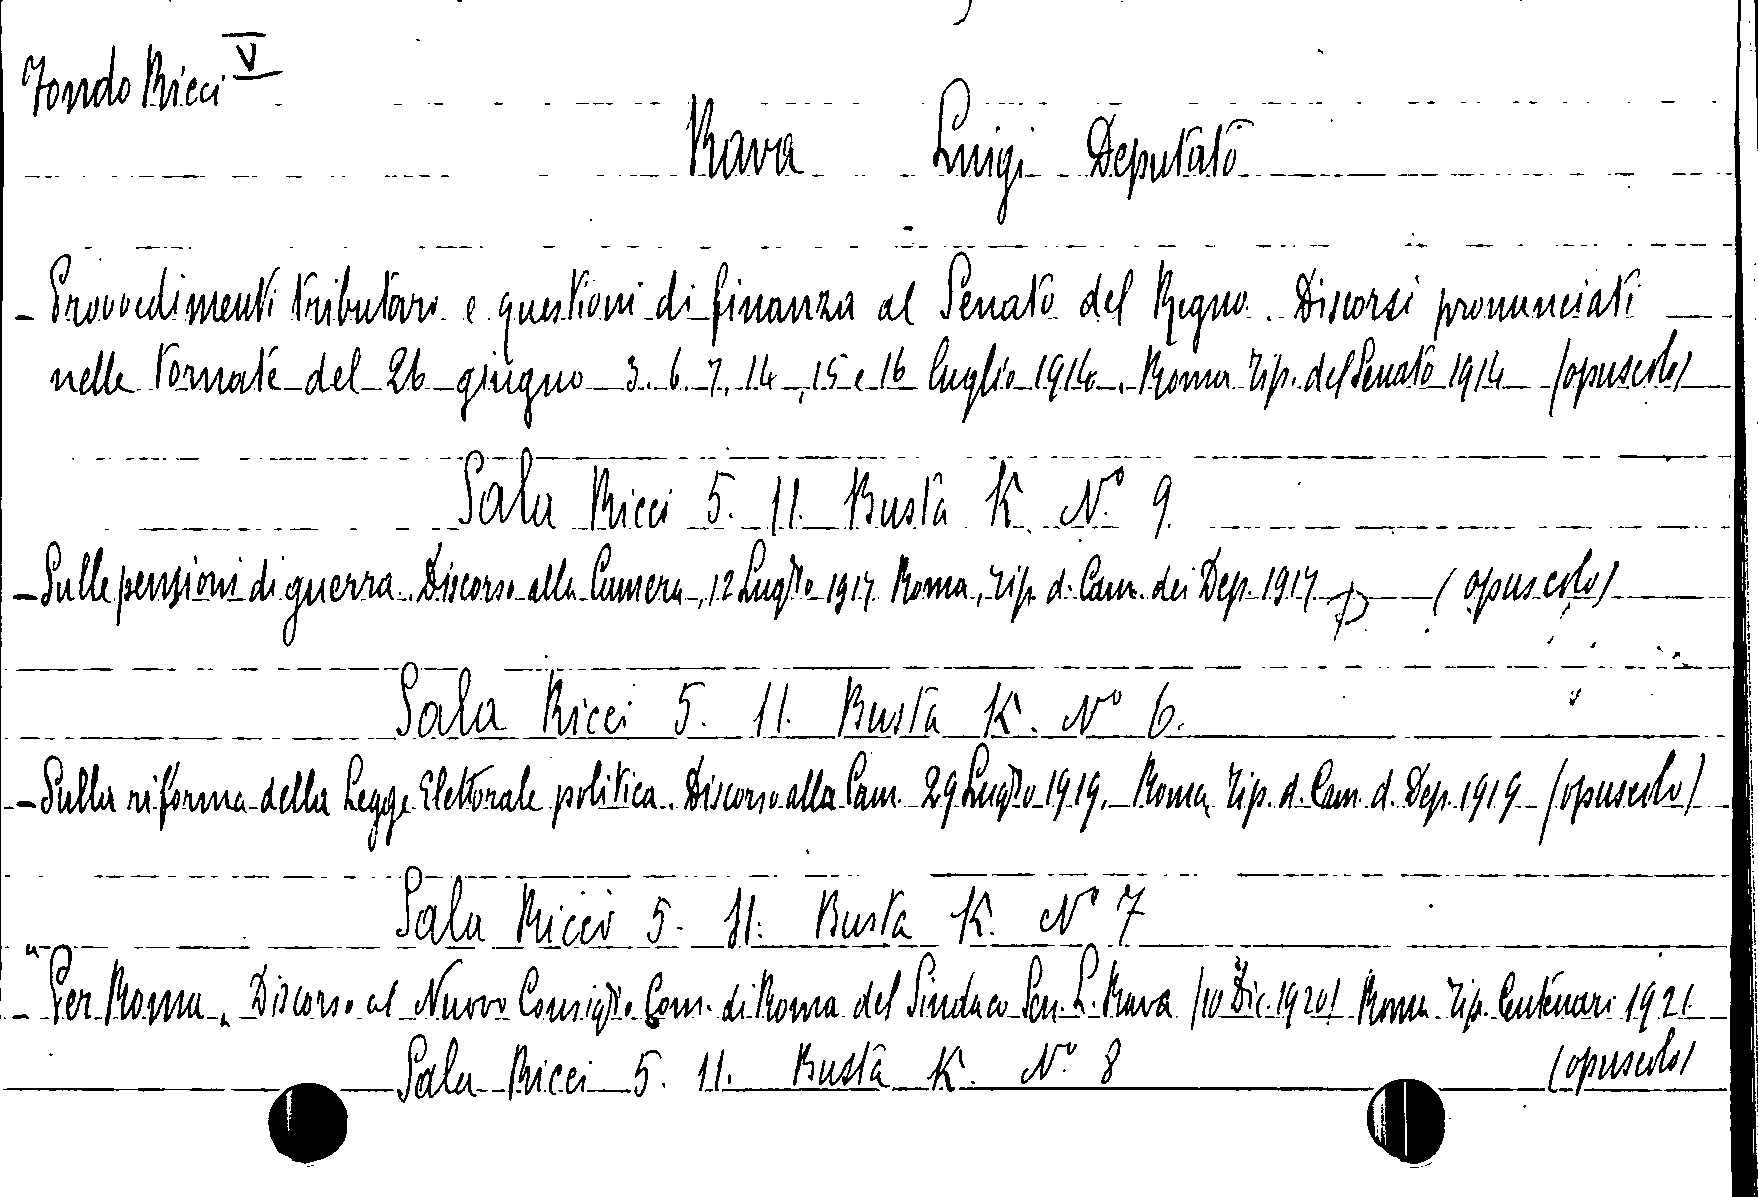 Fondo Ricci V
Rava Luigi Deputato
- Provvedimenti tributari e questioni di finanza al Senato del Regno. Discorsi pronunciati
nelle tornate del 26 giugno 3. 6. 7. 14, 15 e 16 luglio 1914. Roma Tip. del Senato 1914 (opuscolo)
Sala Ricci 5. 11. Busta K. N.° 9.
- Sulle pensioni di guerra. Discorso alla Camera, 12 Luglio 1917. Roma, Tip. d. Cam. dei Dep. 1917 (opuscolo)
Sala Ricci 5. 11. Busta K. N° 6.
- Sulla riforma della Legge Elettorale politica. Discorso alla Cam. 29 Luglio 1919. Roma, Tip. d. Cam. d. Dep. 1919 (opuscolo)
Sala Ricci 5. 11. Busta K. N° 7
- "Per Roma". Discorso al Nuovo Consiglio Com. di Roma del Sindaco Sen. L. Rava (10 Dic. 1920) Roma Tip. Centenari 1921
Sala Ricci 5. 11. Busta K. N.° 8 (opuscolo)